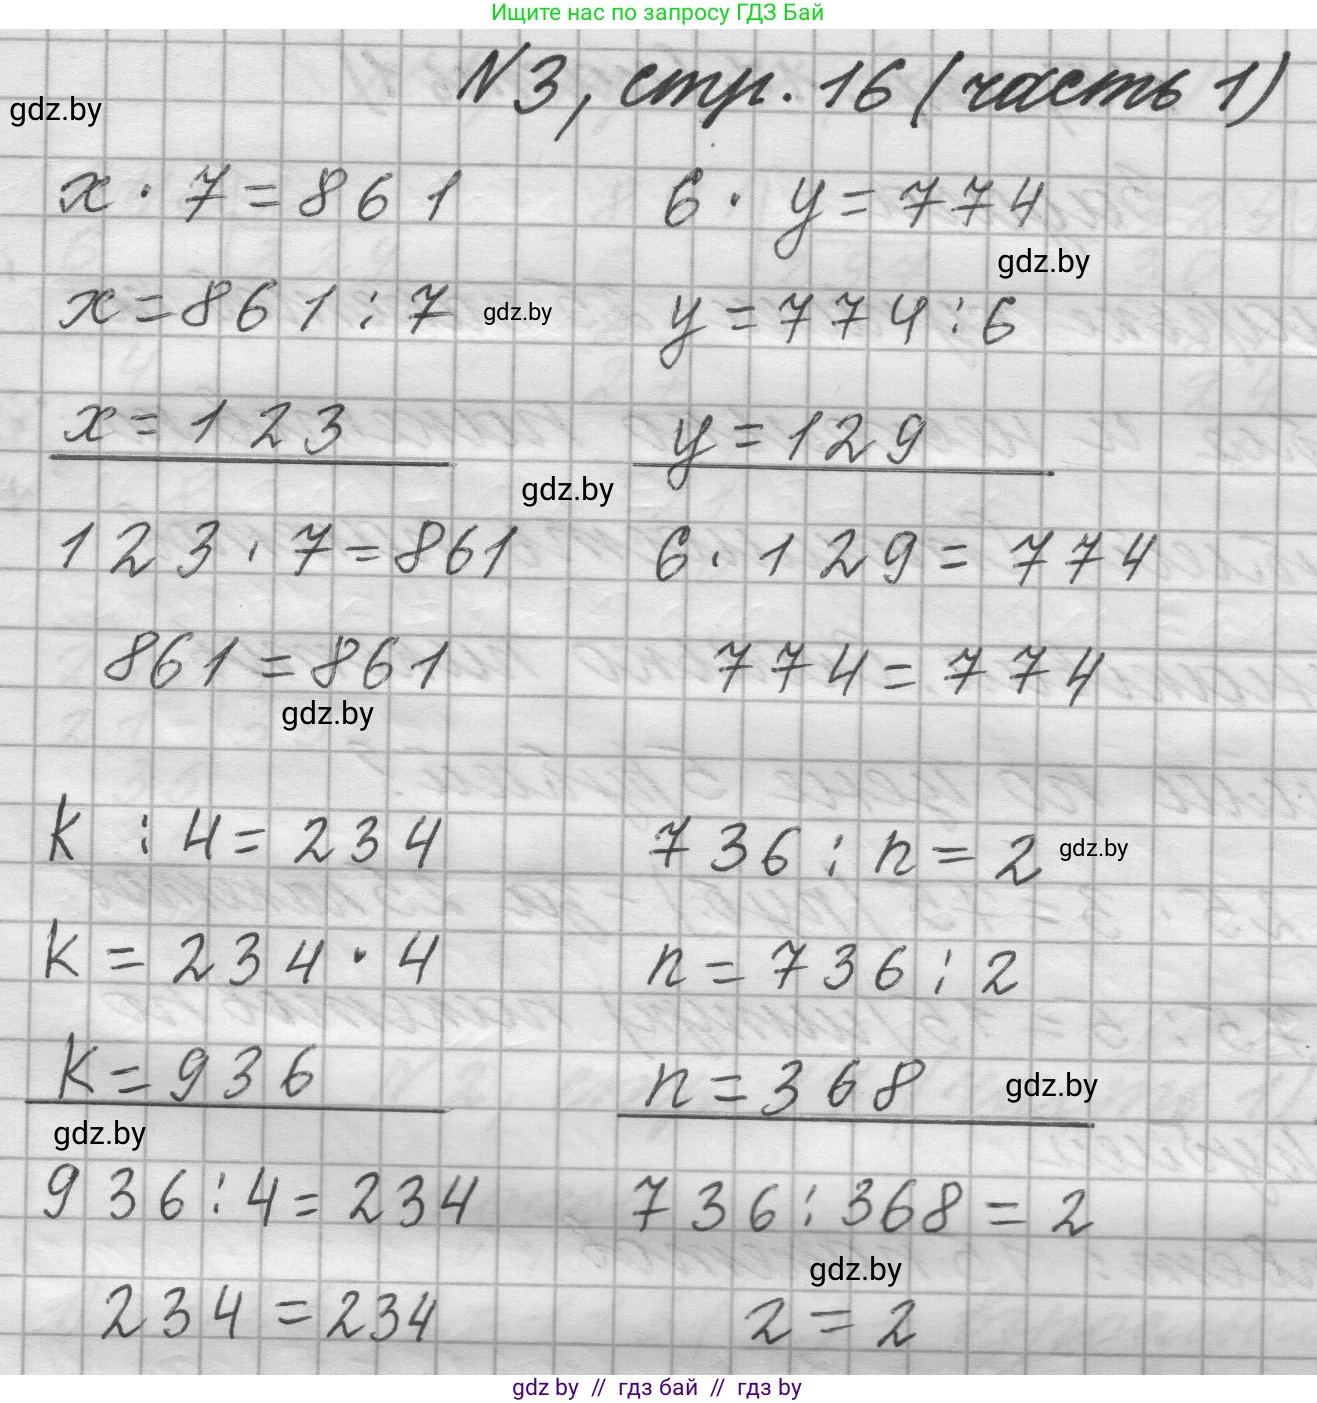 Ищите нас по запросу ГДЗ Бай
N3, стр. 16 (часть 1)
gdz.by
x · 7 = 861
x = 861 : 7
gdz.by
x = 123
123 · 7 = 861
861 = 861
gdz.by
6 · y = 774
gdz.by
y = 774 : 6
y = 129
gdz.by
6 · 129 = 774
774 = 774
k : 4 = 234
k = 234 · 4
k = 936
gdz.by
936 : 4 = 234
234 = 234
736 : n = 2
gdz.by
n = 736 : 2
n = 368
gdz.by
736 : 368 = 2
gdz.by
2 = 2
gdz by // гдз бай // гдз by